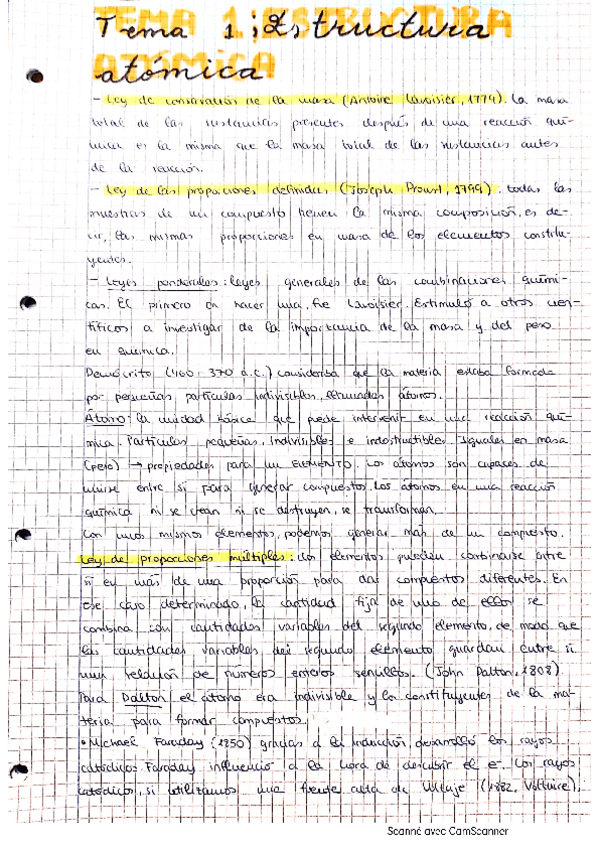 Tema 1: Estructura
atómica
- Ley de conservación de la masa (Antoine Lavoisier, 1774). La masa
total de las sustancias presentes después de una reacción quí-
mica es la misma que la masa total de las sustancias antes
de la reacción.
- Ley de las proporciones definidas (Joseph Proust, 1799). todas las
muestras de un compuesto tienen la misma composición, es de-
cir, las mismas proporciones en masa de los elementos constitu-
yentes.
- Leyes ponderales: leyes generales de las combinaciones quími-
cas. El primero en hacer una, fue Lavoisier. Estimuló a otros cien-
tíficos a investigar de la importancia de la masa y del peso
en química.
Demócrito (460-370 a.c.) consideraba que la materia estaba formada
por pequeñas partículas indivisibles, llamadas átomos.
Átomo: la unidad básica que puede intervenir en una reacción quí-
mica. Partículas pequeñas, indivisibles e indestructibles. Iguales en masa
(peso) → propiedades para un ELEMENTO. Los átomos son capaces de
unirse entre sí para generar compuestos. Los átomos en una reacción
química ni se crean ni se destruyen, se transforman.
Con unos mismos elementos, podemos generar más de un compuesto.
Ley de proporciones múltiples: Los elementos pueden combinarse entre
sí en más de una proporción para dar compuestos diferentes. En
ese caso determinado, la cantidad fija de uno de ellos se
combina con cantidades variables del segundo elemento, de modo que
las cantidades variables del segundo elemento guardan entre sí
una relación de números enteros sencillos. (John Dalton, 1808)
Para Dalton el átomo era indivisible y los constituyentes de la ma-
teria para formar compuestos.
• Michael Faraday (1850) gracias a la inducción, desarrolló los rayos
catódicos. Faraday influenció a la hora de descubrir el e-. Los rayos
catódicos, si utilizamos una fuente alta de voltaje (
Scanné avec CamScanner